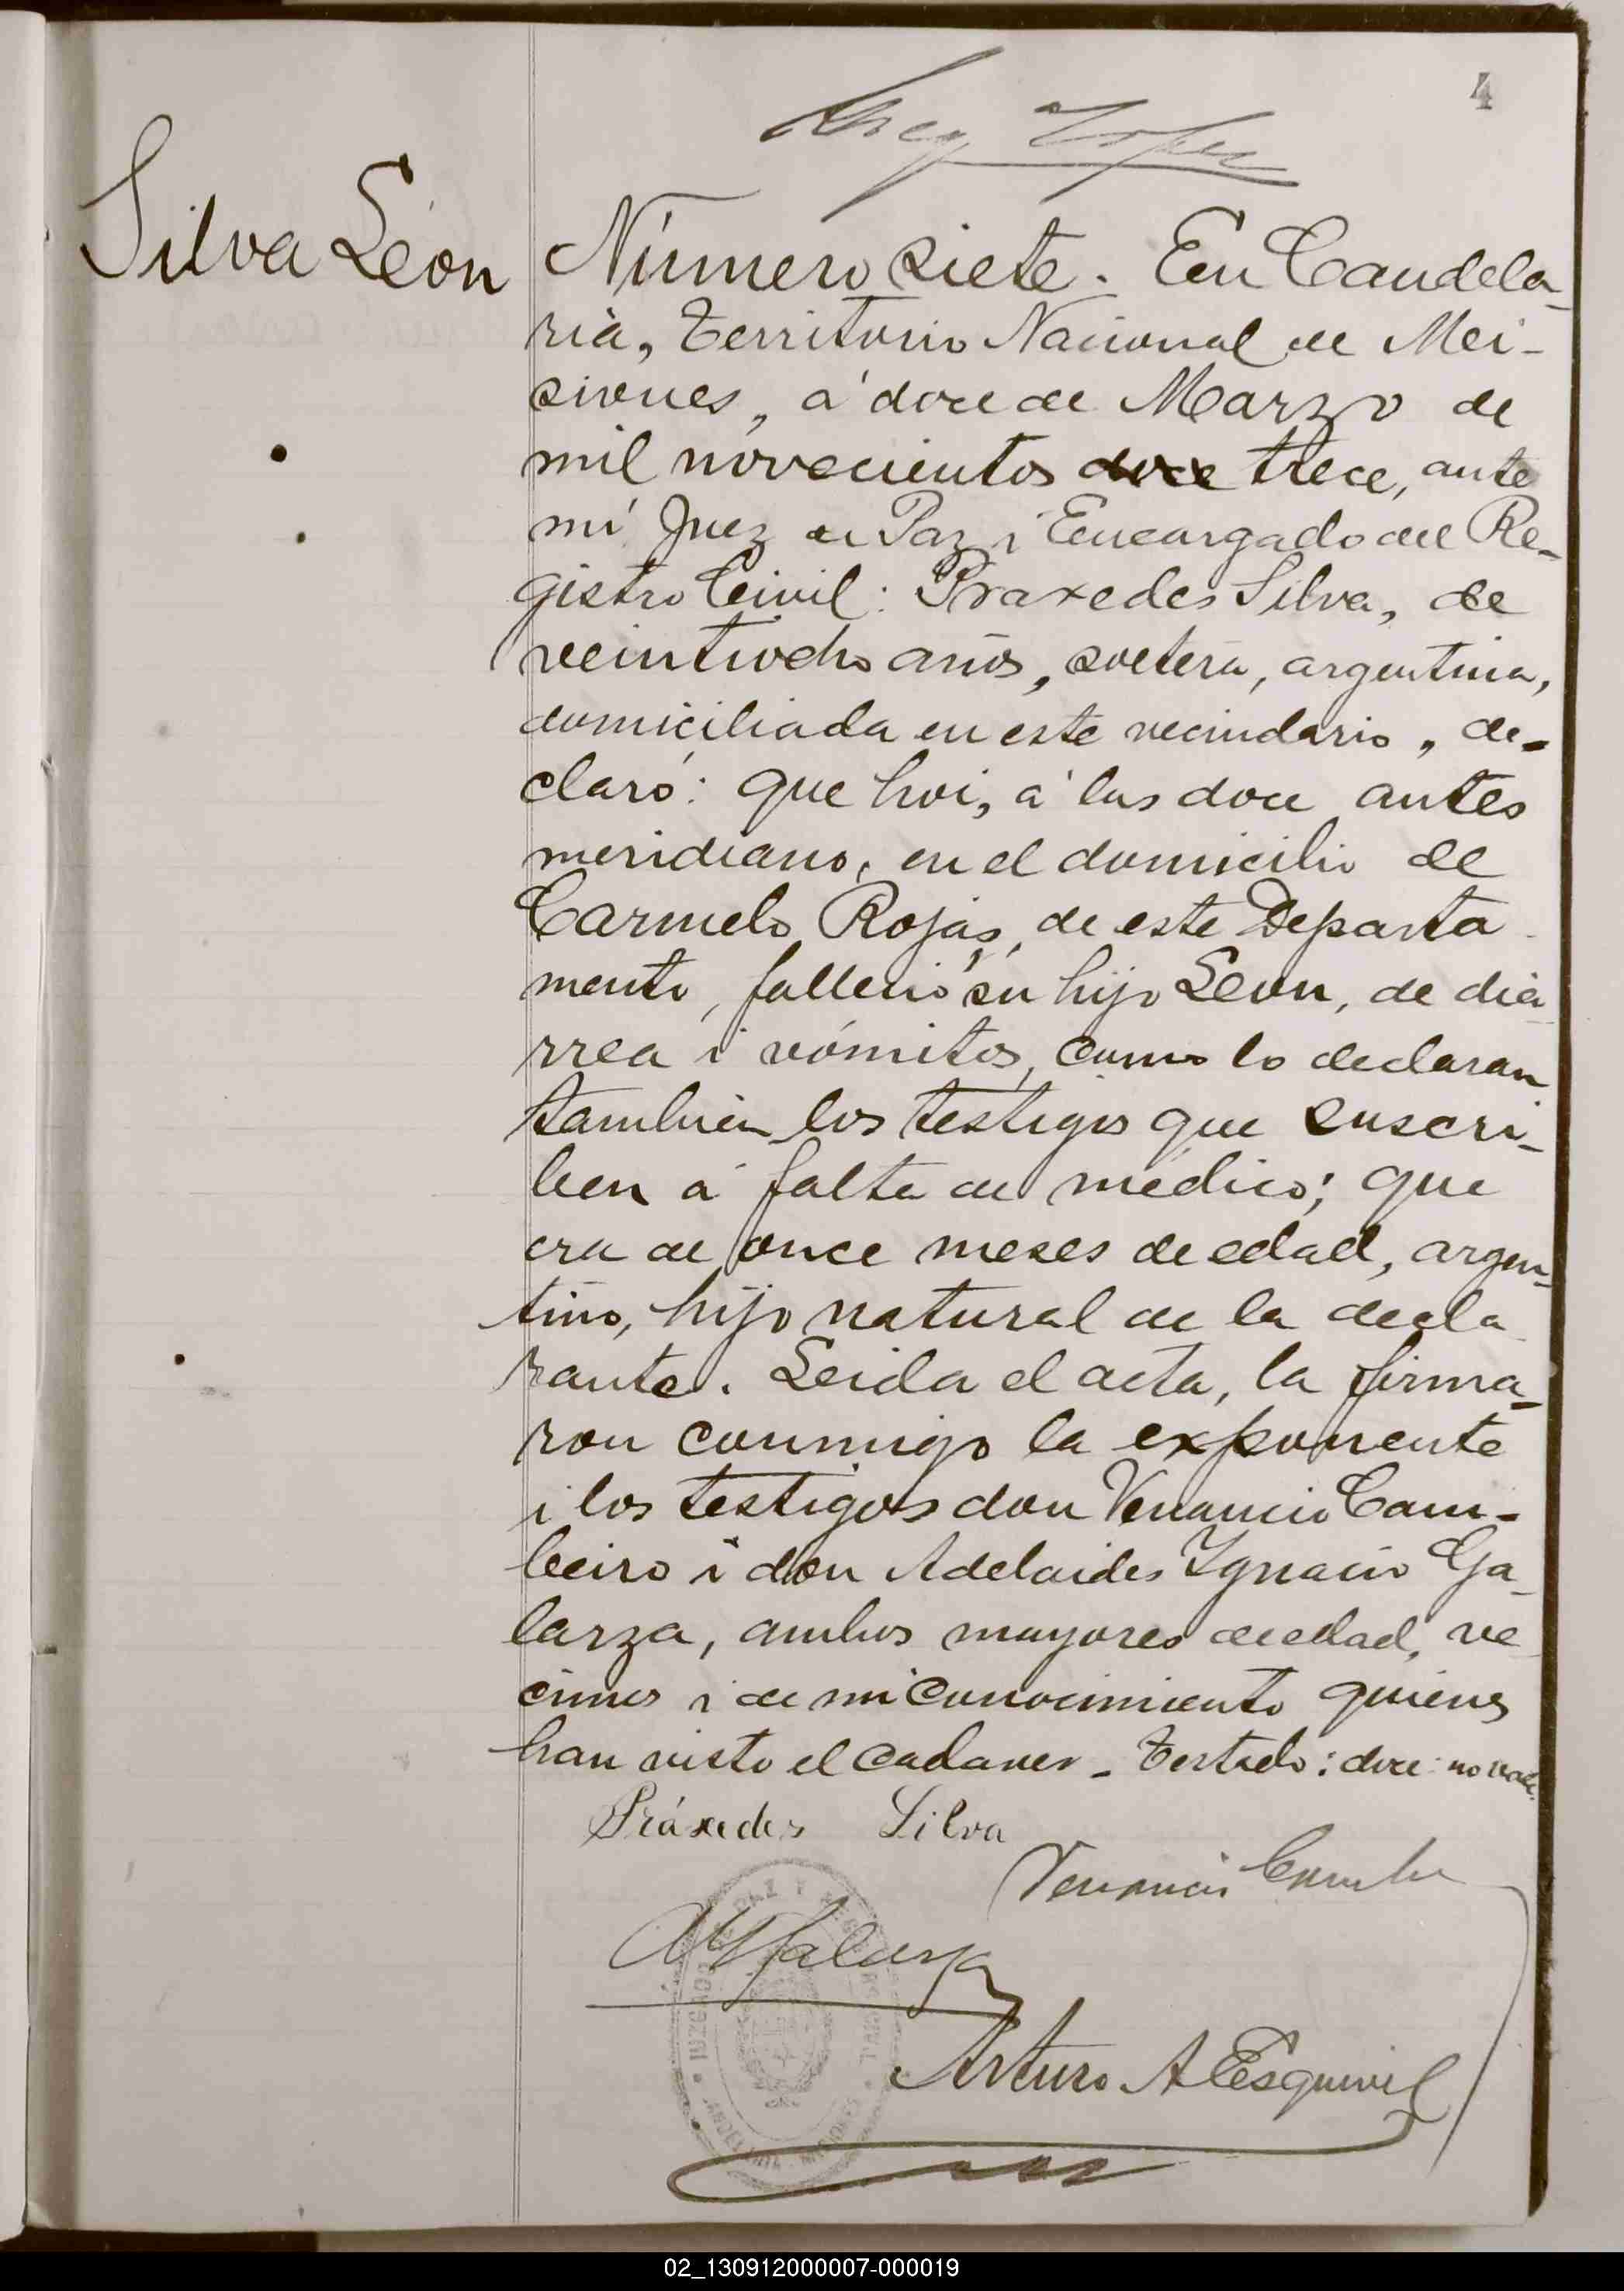 4
Silva León
Número siete. En Candela-
ria, Territorio Nacional de Mi-
siones, á doce de Marzo de
mil novecientos doce trece, ante
mí Juez de Paz i Encargado del Re-
gistro Civil: Praxedes Silva, de
veintiocho años, soltera, argentina,
domiciliada en este vecindario, de-
claró: que hoi, á las doce antes
meridiano, en el domicilio de
Carmelo Rojas, de este Departa-
mento, falleció su hijo León, de dia
rrea i vómitos, como lo declaran
también los testigos que suscri-
ben á falta de médico; que
era de once meses de edad, argen-
tino, hijo natural de la decla
rante. Leida el acta, la firma-
ron conmigo la exponente
i los testigos don Venancio Cam-
beiro i don Adelaides Ygnacio Ga-
larza, ambos mayores de edad, ve
cinos i de mi conocimiento quienes
han visto el cadaver - Testado: doce: no vale.
Práxedes Silva
Venancio
AYGalarza
Arturo A Esquivel
02_130912000007-000019